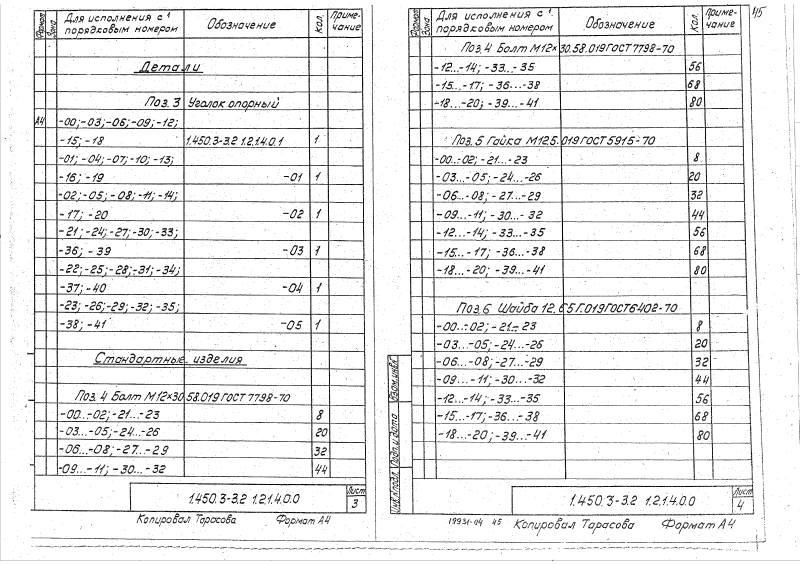 Формат Зона Для исполнения с порядковым номером Обозначение Кол. Примечание
Детали
Поз. 3 Уголок опорный
А4 -00;-03;-06;-09;-12;
-15;-18 1.450.3-3.2 1.2.1.4.0.1 1
-01;-04;-07;-10;-13;
-16;-19 -01 1
-02;-05;-08;-11;-14;
-17;-20 -02 1
-21;-24;-27;-30;-33;
-36;-39 -03 1
-22;-25;-28;-31;-34;
-37;-40 -04 1
-23;-26;-29;-32;-35;
-38;-41 -05 1
Стандартные изделия
Поз. 4 Болт М12×30.58.019 ГОСТ 7798-70
-00...-02;-21...-23 8
-03...-05;-24...-26 20
-06...-08;-27...-29 32
-09...-11;-30...-32 44
1.450.3-3.2 1.2.1.4.0.0 Лист 3
Копировал Тарасова Формат А4
45
Формат Зона Для исполнения с порядковым номером Обозначение Кол. Примечание
Поз. 4 Болт М12×30.58.019 ГОСТ 7798-70
-12...-14;-33...-35 56
-15...-17;-36...-38 68
-18...-20;-39...-41 80
Поз. 5 Гайка М12.5.019 ГОСТ 5915-70
-00...-02;-21...-23 8
-03...-05;-24...-26 20
-06...-08;-27...-29 32
-09...-11;-30...-32 44
-12...-14;-33...-35 56
-15...-17;-36...-38 68
-18...-20;-39...-41 80
Поз. 6 Шайба 12.65Г.019 ГОСТ 6402-70
-00...-02;-21...-23 8
-03...-05;-24...-26 20
-06...-08;-27...-29 32
-09...-11;-30...-32 44
-12...-14;-33...-35 56
-15...-17;-36...-38 68
-18...-20;-39...-41 80
Взам.инв.№
Подп. и дата
Инв.№подл.
1.450.3-3.2 1.2.1.4.0.0 Лист 4
19931-04 45 Копировал Тарасова Формат А4